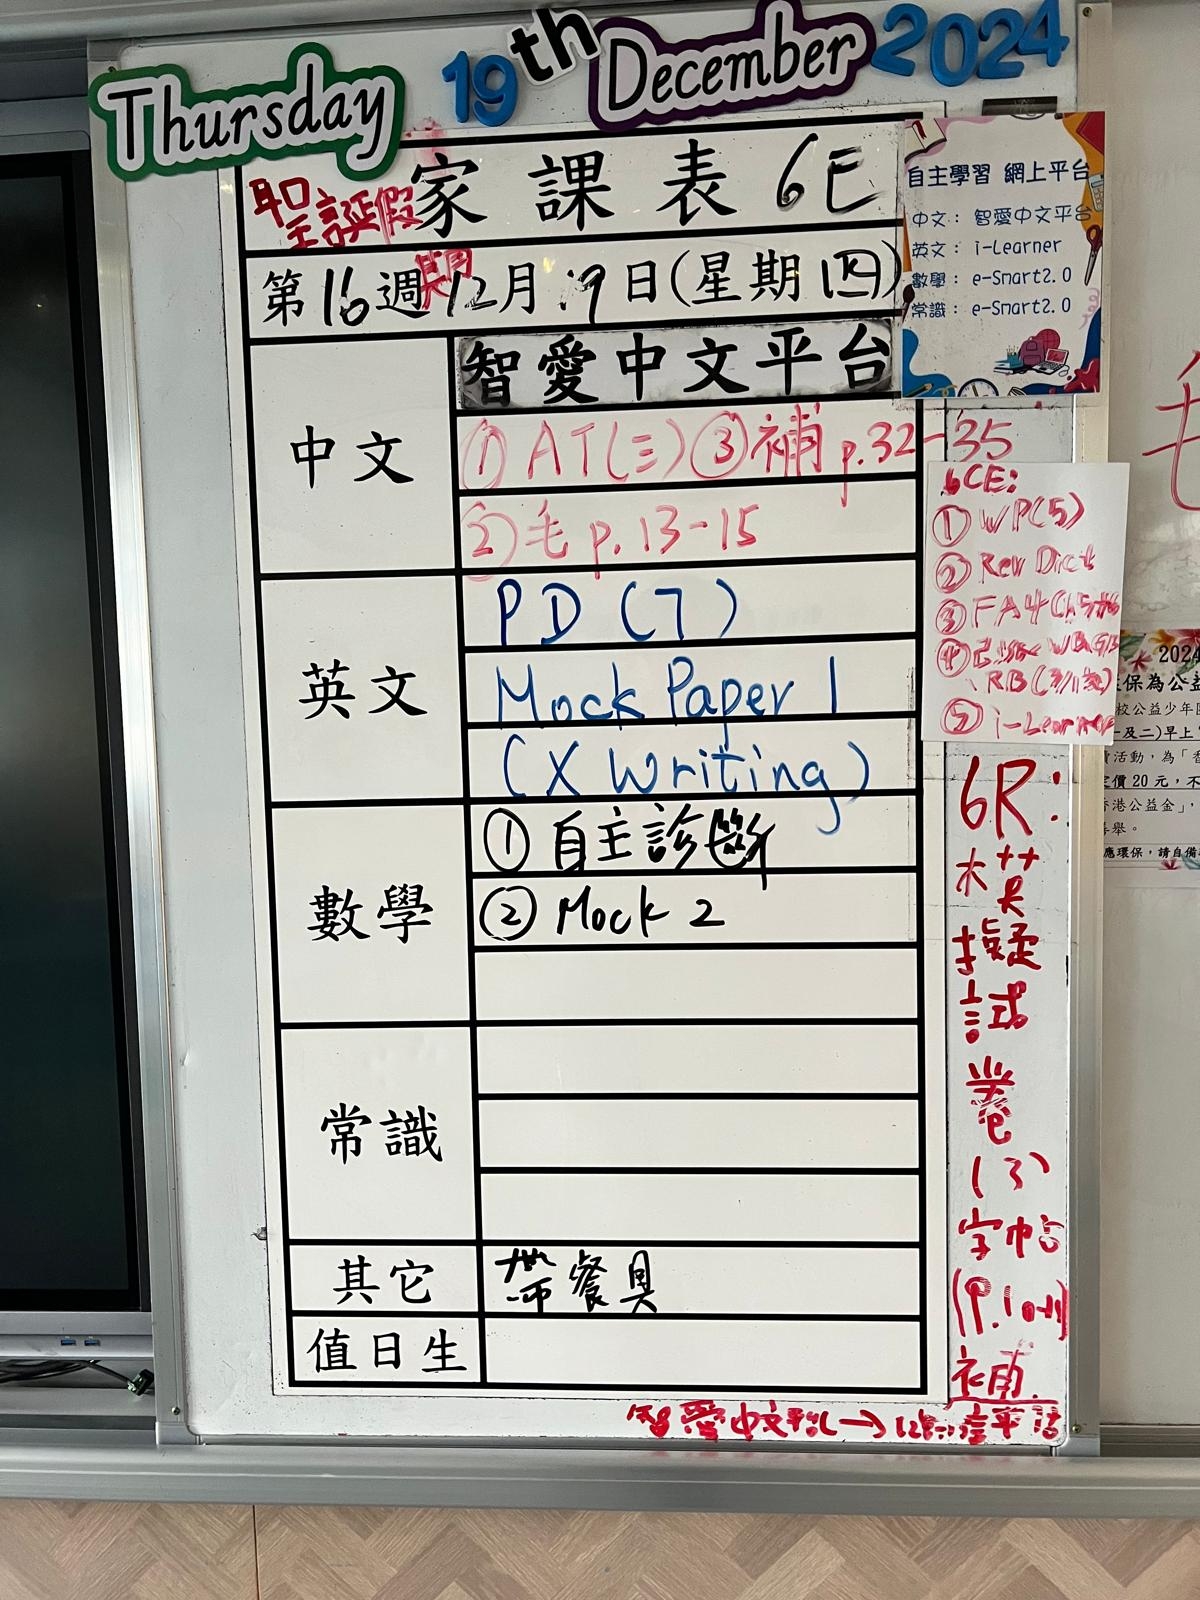 Thursday 19th December 2024
家課表 6E
聖誕假期
第16週 12月19日(星期四)
中文
智愛中文平台
① AT(三) ③補 p.32-35
② 毛 p.13-15
英文
PD (7)
Mock Paper 1
(X Writing)
數學
① 自主診斷
② Mock 2
常識
其它
帶餐具
值日生
自主學習 網上平台
中文： 智愛中文平台
英文： i-Learner
數學： e-Smart2.0
常識： e-Smart2.0
6CE:
① WP(5)
② Rev Dict
③ FA4
④
RB
⑤ i-Learner
6R:
模擬試卷
字帖
補
智愛中文平台→
毛
2024
保為公益
校公益少年團
及二)早上
活動，為「香
定價 20 元，不
香港公益金」，
善舉。
應環保，請自備